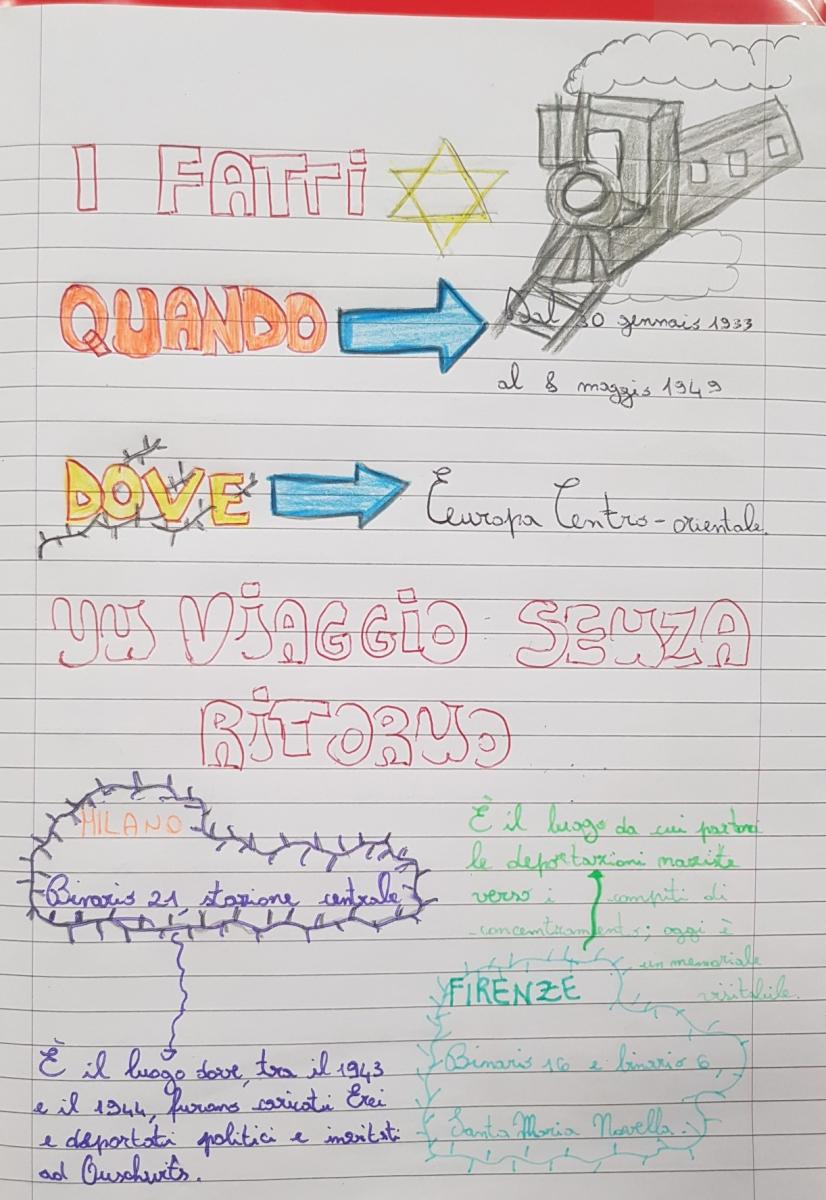 I FATTI
QUANDO
dal 30 gennaio 1933
al 8 maggio 1949
DOVE
Eeuropa Centro-orientale.
UN VIAGGIO SENZA
RITORNO
MILANO
Binario 21, stazione centrale
È il luogo dove, tra il 1943
e il 1944, furono caricati Erei
e deportati politici e inviati
ad Ouschwits.
È il luogo da cui partono
le deportazioni naziste
verso i compiti di
concentramento; oggi è
un memoriale
visitabile.
FIRENZE
Binario 16 e binario 6,
Santa Maria Novella.